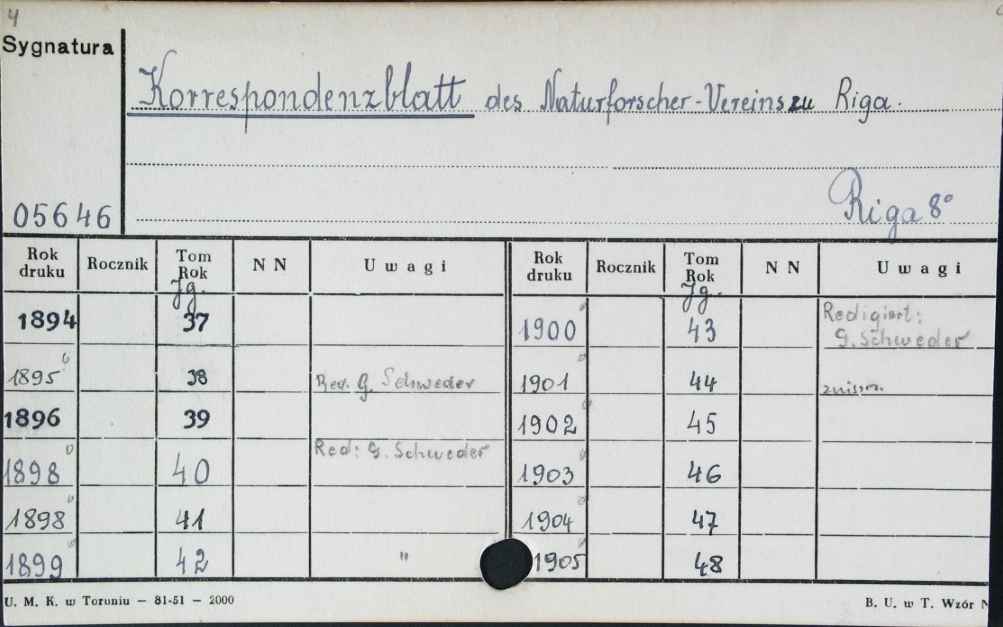 4
Sygnatura
Korrespondenzblatt des Naturforscher-Vereins zu Riga.
05646
Riga 8°
Rok druku Rocznik Tom Rok Jg. NN Uwagi Rok druku Rocznik Tom Rok Jg. NN Uwagi
1894 37 1900 43 Redigiert: G. Schweder
1895 38 Red. G. Schweder 1901 44
1896 39 1902 45
1898 40 Red: G. Schweder 1903 46
1898 41 1904 47
1899 42 " 1905 48
U. M. K. w Toruniu — 81-51 — 2000
B. U. w T. Wzór